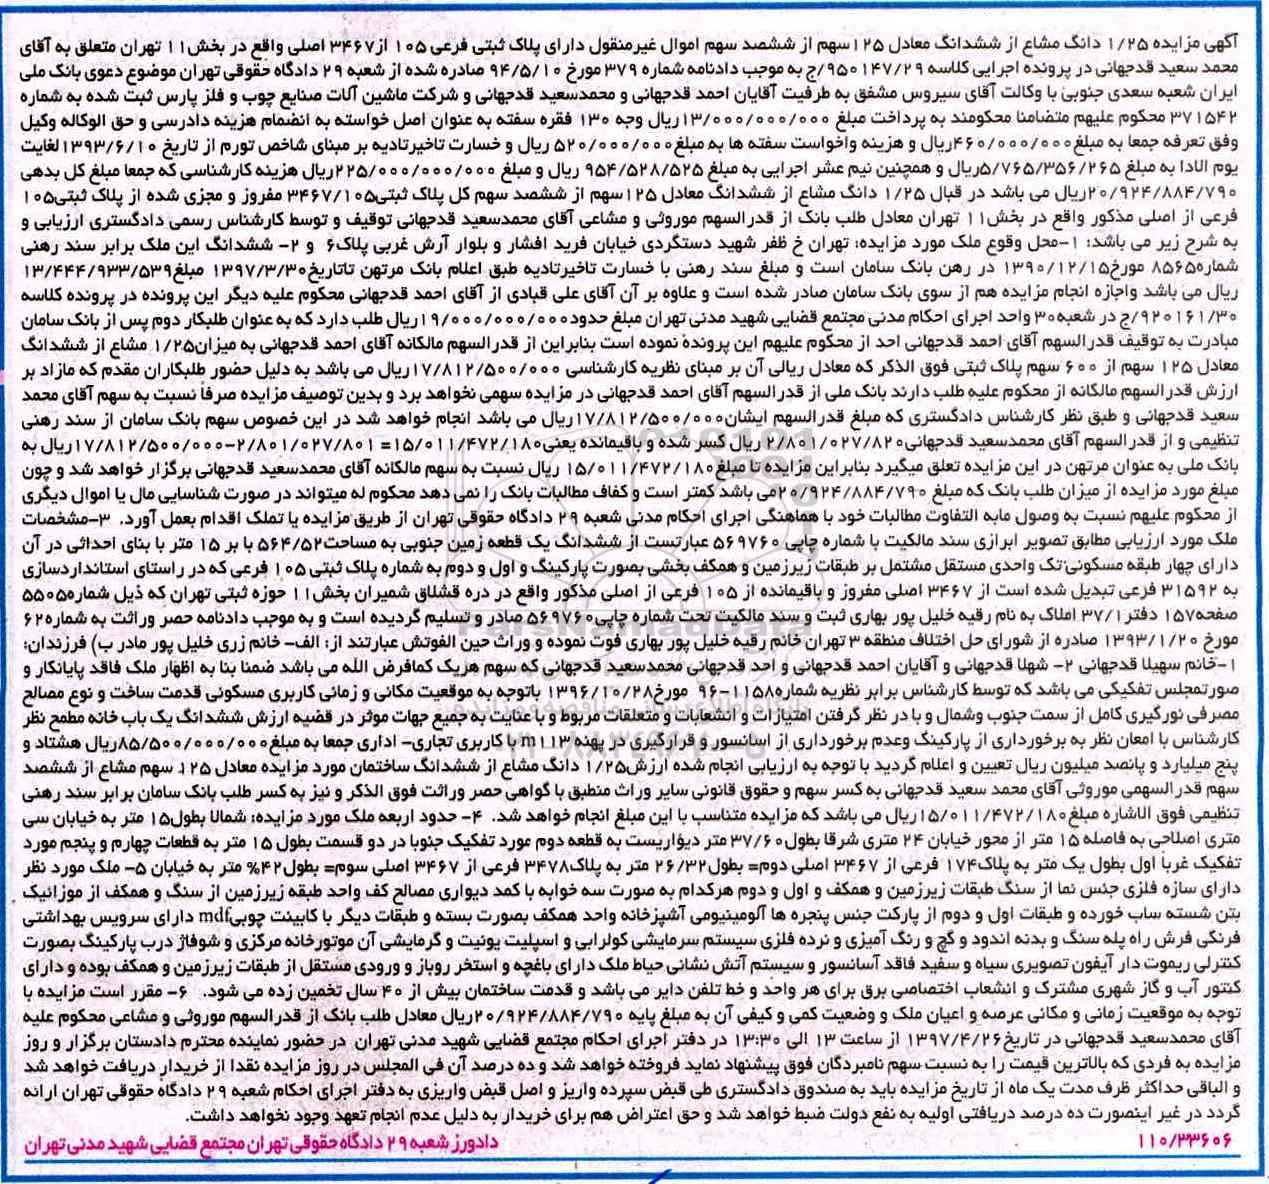 آگهی مزایده ۱/۲۵ دانگ مشاع از ششدانگ معادل ۱۲۵سهم از ششصد سهم اموال غیرمنقول دارای پلاک ثبتی فرعی ۱۰۵ از۳۴۶۷ اصلی واقع در بخش۱۱ تهران متعلق به آقای
محمد سعید قدجهانی در پرونده اجرایی کلاسه ۹۵۰۱۴۷/۲۹/ج به موجب دادنامه شماره ۳۷۹ مورخ ۹۴/۵/۱۰ صادره شده از شعبه ۲۹ دادگاه حقوقی تهران موضوع دعوی بانک ملی
ایران شعبه سعدی جنوبی با وکالت آقای سیروس مشفق به طرفیت آقایان احمد قدجهانی و محمدسعید قدجهانی و شرکت ماشین آلات صنایع چوب و فلز پارس ثبت شده به شماره
۳۷۱۵۴۲ محکوم علیهم متضامنا محکومند به پرداخت مبلغ ۱۳/۰۰۰/۰۰۰/۰۰۰ریال وجه ۱۳۰ فقره سفته به عنوان اصل خواسته به انضمام هزینه دادرسی و حق الوکاله وکیل
وفق تعرفه جمعا به مبلغ۴۶۰/۰۰۰/۰۰۰ریال و هزینه واخواست سفته ها به مبلغ۵۲۰/۰۰۰/۰۰۰ ریال و خسارت تاخیرتادیه بر مبنای شاخص تورم از تاریخ ۱۳۹۳/۶/۱۰لغایت
یوم الادا به مبلغ ۵/۷۶۵/۳۵۶/۲۶۵ریال و همچنین نیم عشر اجرایی به مبلغ ۹۵۴/۵۲۸/۵۲۵ ریال و مبلغ ۲۲۵/۰۰۰/۰۰۰/۰۰۰ریال هزینه کارشناسی که جمعا مبلغ کل بدهی
۲۰/۹۲۴/۸۸۴/۷۹۰ریال می باشد در قبال ۱/۲۵ دانگ مشاع از ششدانگ معادل ۱۲۵سهم از ششصد سهم کل پلاک ثبتی۳۴۶۷/۱۰۵ مفروز و مجزی شده از پلاک ثبتی۱۰۵
فرعی از اصلی مذکور واقع در بخش۱۱ تهران معادل طلب بانک از قدرالسهم موروثی و مشاعی آقای محمدسعید قدجهانی توقیف و توسط کارشناس رسمی دادگستری ارزیابی و
به شرح زیر می باشد: ۱-محل وقوع ملک مورد مزایده: تهران خ ظفر شهید دستگردی خیابان فرید افشار و بلوار آرش غربی پلاک۶ و ۲- ششدانگ این ملک برابر سند رهنی
شماره۸۵۶۵ مورخ۱۳۹۰/۱۲/۱۵ در رهن بانک سامان است و مبلغ سند رهنی با خسارت تاخیرتادیه طبق اعلام بانک مرتهن تاتاریخ۱۳۹۷/۳/۳۰ مبلغ۱۳/۴۴۴/۹۳۳/۵۳۹
ریال می باشد واجازه انجام مزایده هم از سوی بانک سامان صادر شده است و علاوه بر آن آقای علی قبادی از آقای احمد قدجهانی محکوم علیه دیگر این پرونده در پرونده کلاسه
۹۲۰۱۶۱/۳۰/ج در شعبه۳۰ واحد اجرای احکام مدنی مجتمع قضایی شهید مدنی تهران مبلغ حدود۱۹/۰۰۰/۰۰۰/۰۰۰ریال طلب دارد که به عنوان طلبکار دوم پس از بانک سامان
مبادرت به توقیف قدرالسهم آقای احمد قدجهانی احد از محکوم علیهم این پرونده نموده است بنابراین از قدرالسهم مالکانه آقای احمد قدجهانی به میزان۱/۲۵ مشاع از ششدانگ
معادل ۱۲۵ سهم از ۶۰۰ سهم پلاک ثبتی فوق الذکر که معادل ریالی آن بر مبنای نظریه کارشناسی ۱۷/۸۱۲/۵۰۰/۰۰۰ریال می باشد به دلیل حضور طلبکاران مقدم که مازاد بر
ارزش قدرالسهم مالکانه از محکوم علیه طلب دارند بانک ملی از قدرالسهم آقای احمد قدجهانی در مزایده سهمی نخواهد برد و بدین توصیف مزایده صرفاً نسبت به سهم آقای محمد
سعید قدجهانی و طبق نظر کارشناس دادگستری که مبلغ قدرالسهم ایشان۱۷/۸۱۲/۵۰۰/۰۰۰ریال می باشد انجام خواهد شد در این خصوص سهم بانک سامان از سند رهنی
تنظیمی و از قدرالسهم آقای محمدسعید قدجهانی۲/۸۰۱/۰۲۷/۸۲۰ ریال کسر شده و باقیمانده یعنی۱۵/۰۱۱/۴۷۲/۱۸۰= ۲/۸۰۱/۰۲۷/۸۰۱-۱۷/۸۱۲/۵۰۰/۰۰۰ریال به
بانک ملی به عنوان مرتهن در این مزایده تعلق میگیرد بنابراین مزایده تا مبلغ۱۵/۰۱۱/۴۷۲/۱۸۰ ریال نسبت به سهم مالکانه آقای محمدسعید قدجهانی برگزار خواهد شد و چون
مبلغ مورد مزایده از میزان طلب بانک که مبلغ ۲۰/۹۲۴/۸۸۴/۷۹۰می باشد کمتر است و کفاف مطالبات بانک را نمی دهد محکوم له میتواند در صورت شناسایی مال یا اموال دیگری
از محکوم علیهم نسبت به وصول مابه التفاوت مطالبات خود با هماهنگی اجرای احکام مدنی شعبه ۲۹ دادگاه حقوقی تهران از طریق مزایده یا تملک اقدام بعمل آورد. ۳-مشخصات
ملک مورد ارزیابی مطابق تصویر ابرازی سند مالکیت با شماره چاپی ۵۶۹۷۶۰ عبارتست از ششدانگ یک قطعه زمین جنوبی به مساحت۵۶۴/۵۲ با بر ۱۵ متر با بنای احداثی در آن
دارای چهار طبقه مسکونی:تک واحدی مستقل مشتمل بر طبقات زیرزمین و همکف بخشی بصورت پارکینگ و اول و دوم به شماره پلاک ثبتی ۱۰۵ فرعی که در راستای استانداردسازی
به ۳۱۵۹۲ فرعی تبدیل شده است از ۳۴۶۷ اصلی مفروز و باقیمانده از ۱۰۵ فرعی از اصلی مذکور واقع در دره قشلاق شمیران بخش۱۱ حوزه ثبتی تهران که ذیل شماره۵۵۰۵
صفحه۱۵۷ دفتر۳۷/۱ املاک به نام رقیه خلیل پور بهاری ثبت و سند مالکیت تحت شماره چاپی۵۶۹۷۶۰ صادر و تسلیم گردیده است و به موجب دادنامه حصر وراثت به شماره۶۲
مورخ ۱۳۹۳/۱/۲۰ صادره از شورای حل اختلاف منطقه ۳ تهران خانم رقیه خلیل پور بهاری فوت نموده و وراث حین الفوتش عبارتند از: الف- خانم زری خلیل پور مادر ب) فرزندان:
۱-خانم سهیلا قدجهانی ۲- شهلا قدجهانی و آقایان احمد قدجهانی و احد قدجهانی محمدسعید قدجهانی که سهم هریک کمافرض الله می باشد ضمنا بنا به اظهار ملک فاقد پایانکار و
صورتمجلس تفکیکی می باشد که توسط کارشناس برابر نظریه شماره۱۱۵۸-۹۶ مورخ۱۳۹۶/۱۰/۲۸ باتوجه به موقعیت مکانی و زمانی کاربری مسکونی قدمت ساخت و نوع مصالح
مصرفی نورگیری کامل از سمت جنوب وشمال و با در نظر گرفتن امتیازات و انشعابات و متعلقات مربوط و با عنایت به جمیع جهات موثر در قضیه ارزش ششدانگ یک باب خانه مطمح نظر
کارشناس با امعان نظر به برخورداری از پارکینگ وعدم برخورداری از اسانسور و قرارگیری در پهنه m۱۱۳ با کاربری تجاری- اداری جمعا به مبلغ۸۵/۵۰۰/۰۰۰/۰۰۰ریال هشتاد و
پنج میلیارد و پانصد میلیون ریال تعیین و اعلام گردید با توجه به ارزیابی انجام شده ارزش۱/۲۵ دانگ مشاع از ششدانگ ساختمان مورد مزایده معادل ۱۲۵ سهم مشاع از ششصد
سهم قدرالسهمی موروثی آقای محمد سعید قدجهانی به کسر سهم و حقوق قانونی سایر وراث منطبق با گواهی حصر وراثت فوق الذکر و نیز به کسر طلب بانک سامان برابر سند رهنی
تنظیمی فوق الاشاره مبلغ۱۵/۰۱۱/۴۷۲/۱۸۰ریال می باشد که مزایده متناسب با این مبلغ انجام خواهد شد. ۴- حدود اربعه ملک مورد مزایده: شمالا بطول۱۵ متر به خیابان سی
متری اصلاحی به فاصله ۱۵ متر از محور خیابان ۲۴ متری شرقا بطول۳۷/۶۰ متر دیواریست به قطعه دوم مورد تفکیک جنوبا در دو قسمت بطول ۱۵ متر به قطعات چهارم و پنجم مورد
تفکیک غرباً اول بطول یک متر به پلاک۱۷۴ فرعی از ۳۴۶۷ اصلی دوم= بطول۲۶/۳۲ متر به پلاک۳۴۷۸ فرعی از ۳۴۶۷ اصلی سوم= بطول۴۲% متر به خیابان ۵- ملک مورد نظر
دارای سازه فلزی جنس نما از سنگ طبقات زیرزمین و همکف و اول و دوم هرکدام به صورت سه خوابه با کمد دیواری مصالح کف واحد طبقه زیرزمین از سنگ و همکف از موزائیک
بتن شسته ساب خورده و طبقات اول و دوم از پارکت جنس پنجره ها آلومینیومی آشپزخانه واحد همکف بصورت بسته و طبقات دیگر با کابینت چوبیmdf دارای سرویس بهداشتی
فرنگی فرش راه پله سنگ و بدنه اندود و گچ و رنگ آمیزی و نرده فلزی سیستم سرمایشی کولرابی و اسپلیت یونیت و گرمایشی آن موتورخانه مرکزی و شوفاژ درب پارکینگ بصورت
کنترلی ریموت دار آیفون تصویری سیاه و سفید فاقد آسانسور و سیستم آتش نشانی حیاط ملک دارای باغچه و استخر روباز و ورودی مستقل از طبقات زیرزمین و همکف بوده و دارای
کنتور آب و گاز شهری مشترک و انشعاب اختصاصی برق برای هر واحد و خط تلفن دایر می باشد و قدمت ساختمان بیش از ۴۰ سال تخمین زده می شود. ۶- مقرر است مزایده با
توجه به موقعیت زمانی و مکانی عرصه و اعیان ملک و وضعیت کمی و کیفی آن به مبلغ پایه ۲۰/۹۲۴/۸۸۴/۷۹۰ریال معادل طلب بانک از قدرالسهم موروثی و مشاعی محکوم علیه
آقای محمدسعید قدجهانی در تاریخ۱۳۹۷/۴/۲۶ از ساعت ۱۳ الی ۱۳:۳۰ در دفتر اجرای احکام مجتمع قضایی شهید مدنی تهران در حضور نماینده محترم دادستان برگزار و روز
مزایده به فردی که بالاترین قیمت را به نسبت سهم نامبردگان فوق پیشنهاد نماید فروخته خواهد شد و ده درصد آن فی المجلس در روز مزایده نقدا از خریدار دریافت خواهد شد
و الباقی حداکثر ظرف مدت یک ماه از تاریخ مزایده باید به صندوق دادگستری طی قبض سپرده واریز و اصل قبض واریزی به دفتر اجرای احکام شعبه ۲۹ دادگاه حقوقی تهران ارائه
گردد در غیر اینصورت ده درصد دریافتی اولیه به نفع دولت ضبط خواهد شد و حق اعتراض هم برای خریدار به دلیل عدم انجام تعهد وجود نخواهد داشت.
۱۱۰/۳۳۶۰۶ دادورز شعبه ۲۹ دادگاه حقوقی تهران مجتمع قضایی شهید مدنی تهران